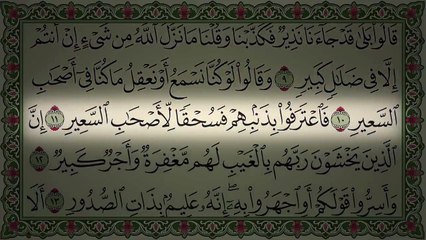 قَالُوا۟ بَلَىٰ قَدْ جَآءَنَا نَذِيرٌ فَكَذَّبْنَا وَقُلْنَا مَا نَزَّلَ ٱللَّهُ مِن شَىْءٍ إِنْ أَنتُمْ
إِلَّا فِى ضَلَـٰلٍ كَبِيرٍ ٩ وَقَالُوا۟ لَوْ كُنَّا نَسْمَعُ أَوْ نَعْقِلُ مَا كُنَّا فِىٓ أَصْحَـٰبِ
ٱلسَّعِيرِ ١٠ فَٱعْتَرَفُوا۟ بِذَنۢبِهِمْ فَسُحْقًا لِّأَصْحَـٰبِ ٱلسَّعِيرِ ١١ إِنَّ
ٱلَّذِينَ يَخْشَوْنَ رَبَّهُم بِٱلْغَيْبِ لَهُم مَّغْفِرَةٌ وَأَجْرٌ كَبِيرٌ ١٢
وَأَسِرُّوا۟ قَوْلَكُمْ أَوِ ٱجْهَرُوا۟ بِهِۦٓ إِنَّهُۥ عَلِيمٌۢ بِذَاتِ ٱلصُّدُورِ ١٣ أَلَا